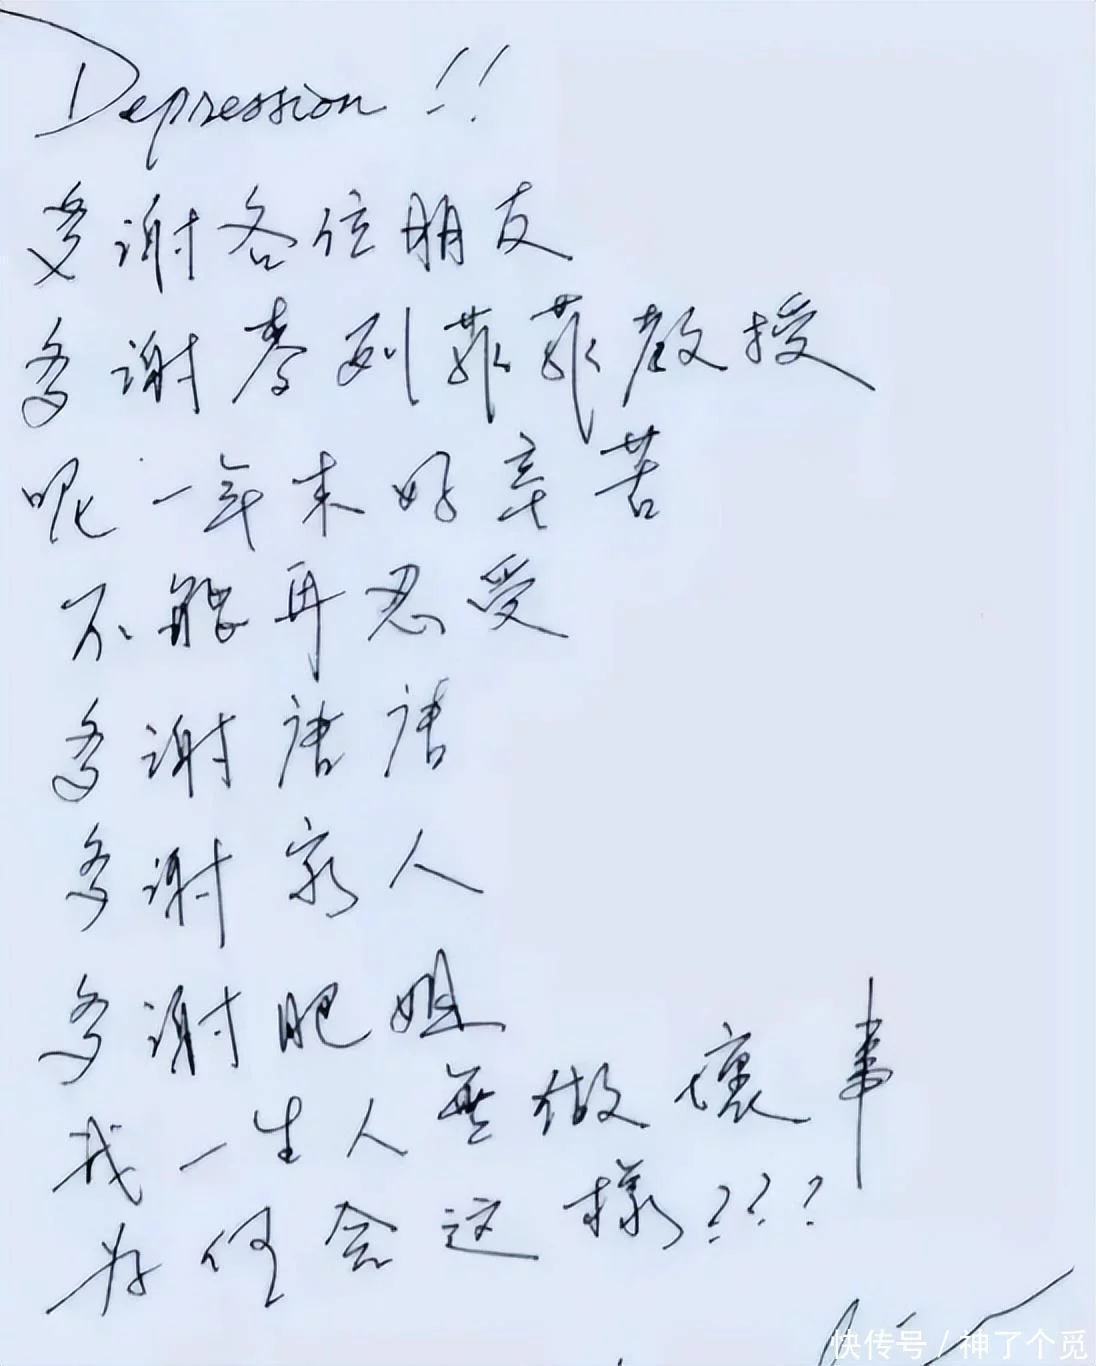 Depression !!
多谢各位朋友
多谢麥列菲菲教授
呢一年来好辛苦
不能再忍受
多谢唐唐
多谢家人
多谢肥姐
我一生人無做壞事
为何会这樣???
快传号 / 神了个觅